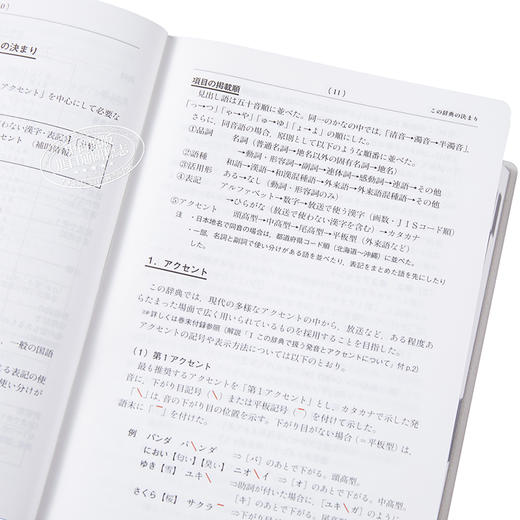 の決まり
アクセント」を中心にして必要な
わない漢字・表記〉
セント 〔補助情報〕
、一般の国語
る表記の使
使い分けが
(11)
この辞典の決まり
項目の掲載順
見出し語は五十音順に並べた。同一のかなの中では、「清音→濁音→半濁音」
「っ→つ」「ゃ→や」「ゅ→ゆ」「ょ→よ」の順にした。
さらに、同音語の場合、原則として以下のような順番に並べた。
①品詞 名詞(普通名詞→地名以外の固有名詞→地名)
→動詞・形容詞→副詞→連体詞→感動詞→連語→その他
②語種 和語→漢語→和漢混種語→外来語→外来語混種語→その他
③活用形 ある→なし(動詞・形容詞のみ)
④表記 アルファベット→数字→放送で使う漢字(画数・JISコード順)
→ひらがな(放送で使わない漢字を含む)→カタカナ
⑤アクセント 頭高型→中高型→尾高型→平板型(外来語など)
注 ・日本地名で同音の場合は、都道府県コード順(北海道〜沖縄)に並べた。
・一部、名詞と副詞で使い分けがある語を並べたり、表記をまとめた語を先にしたり
した。
1.アクセント
この辞典では、現代の多様なアクセントの中から、放送など、ある程度あ
らたまった場面で広く用いられているものを採用することを目指した。
☞詳しくは巻末付録参照(解説「Ⅰ この辞典で扱う発音とアクセントについて」付p.2)
アクセントの記号や表示方法については以下のとおり。
(1)第1アクセント
最も推奨するアクセントを「第1アクセント」とし、カタカナで示した発
音に、下がり目記号(\)または平板記号(￣)を付けて示した。
「\」は、音の下がり目の位置を示す。下がり目がない場合(=平板型)は、
語末に「￣」を付けた。
例 パンダ パ\ンダ ⇒[パ]のあとで下がる。頭高型。
におい【匂い】【臭い】 ニオ\イ ⇒[オ]のあとで下がる。中高型。
ゆき【雪】 ユキ\ ⇒助詞が付いた場合に、[ユキ\ガ]のように
[キ]のあとで下がる。尾高型
さくら【桜】 サクラ￣ ⇒下がり目